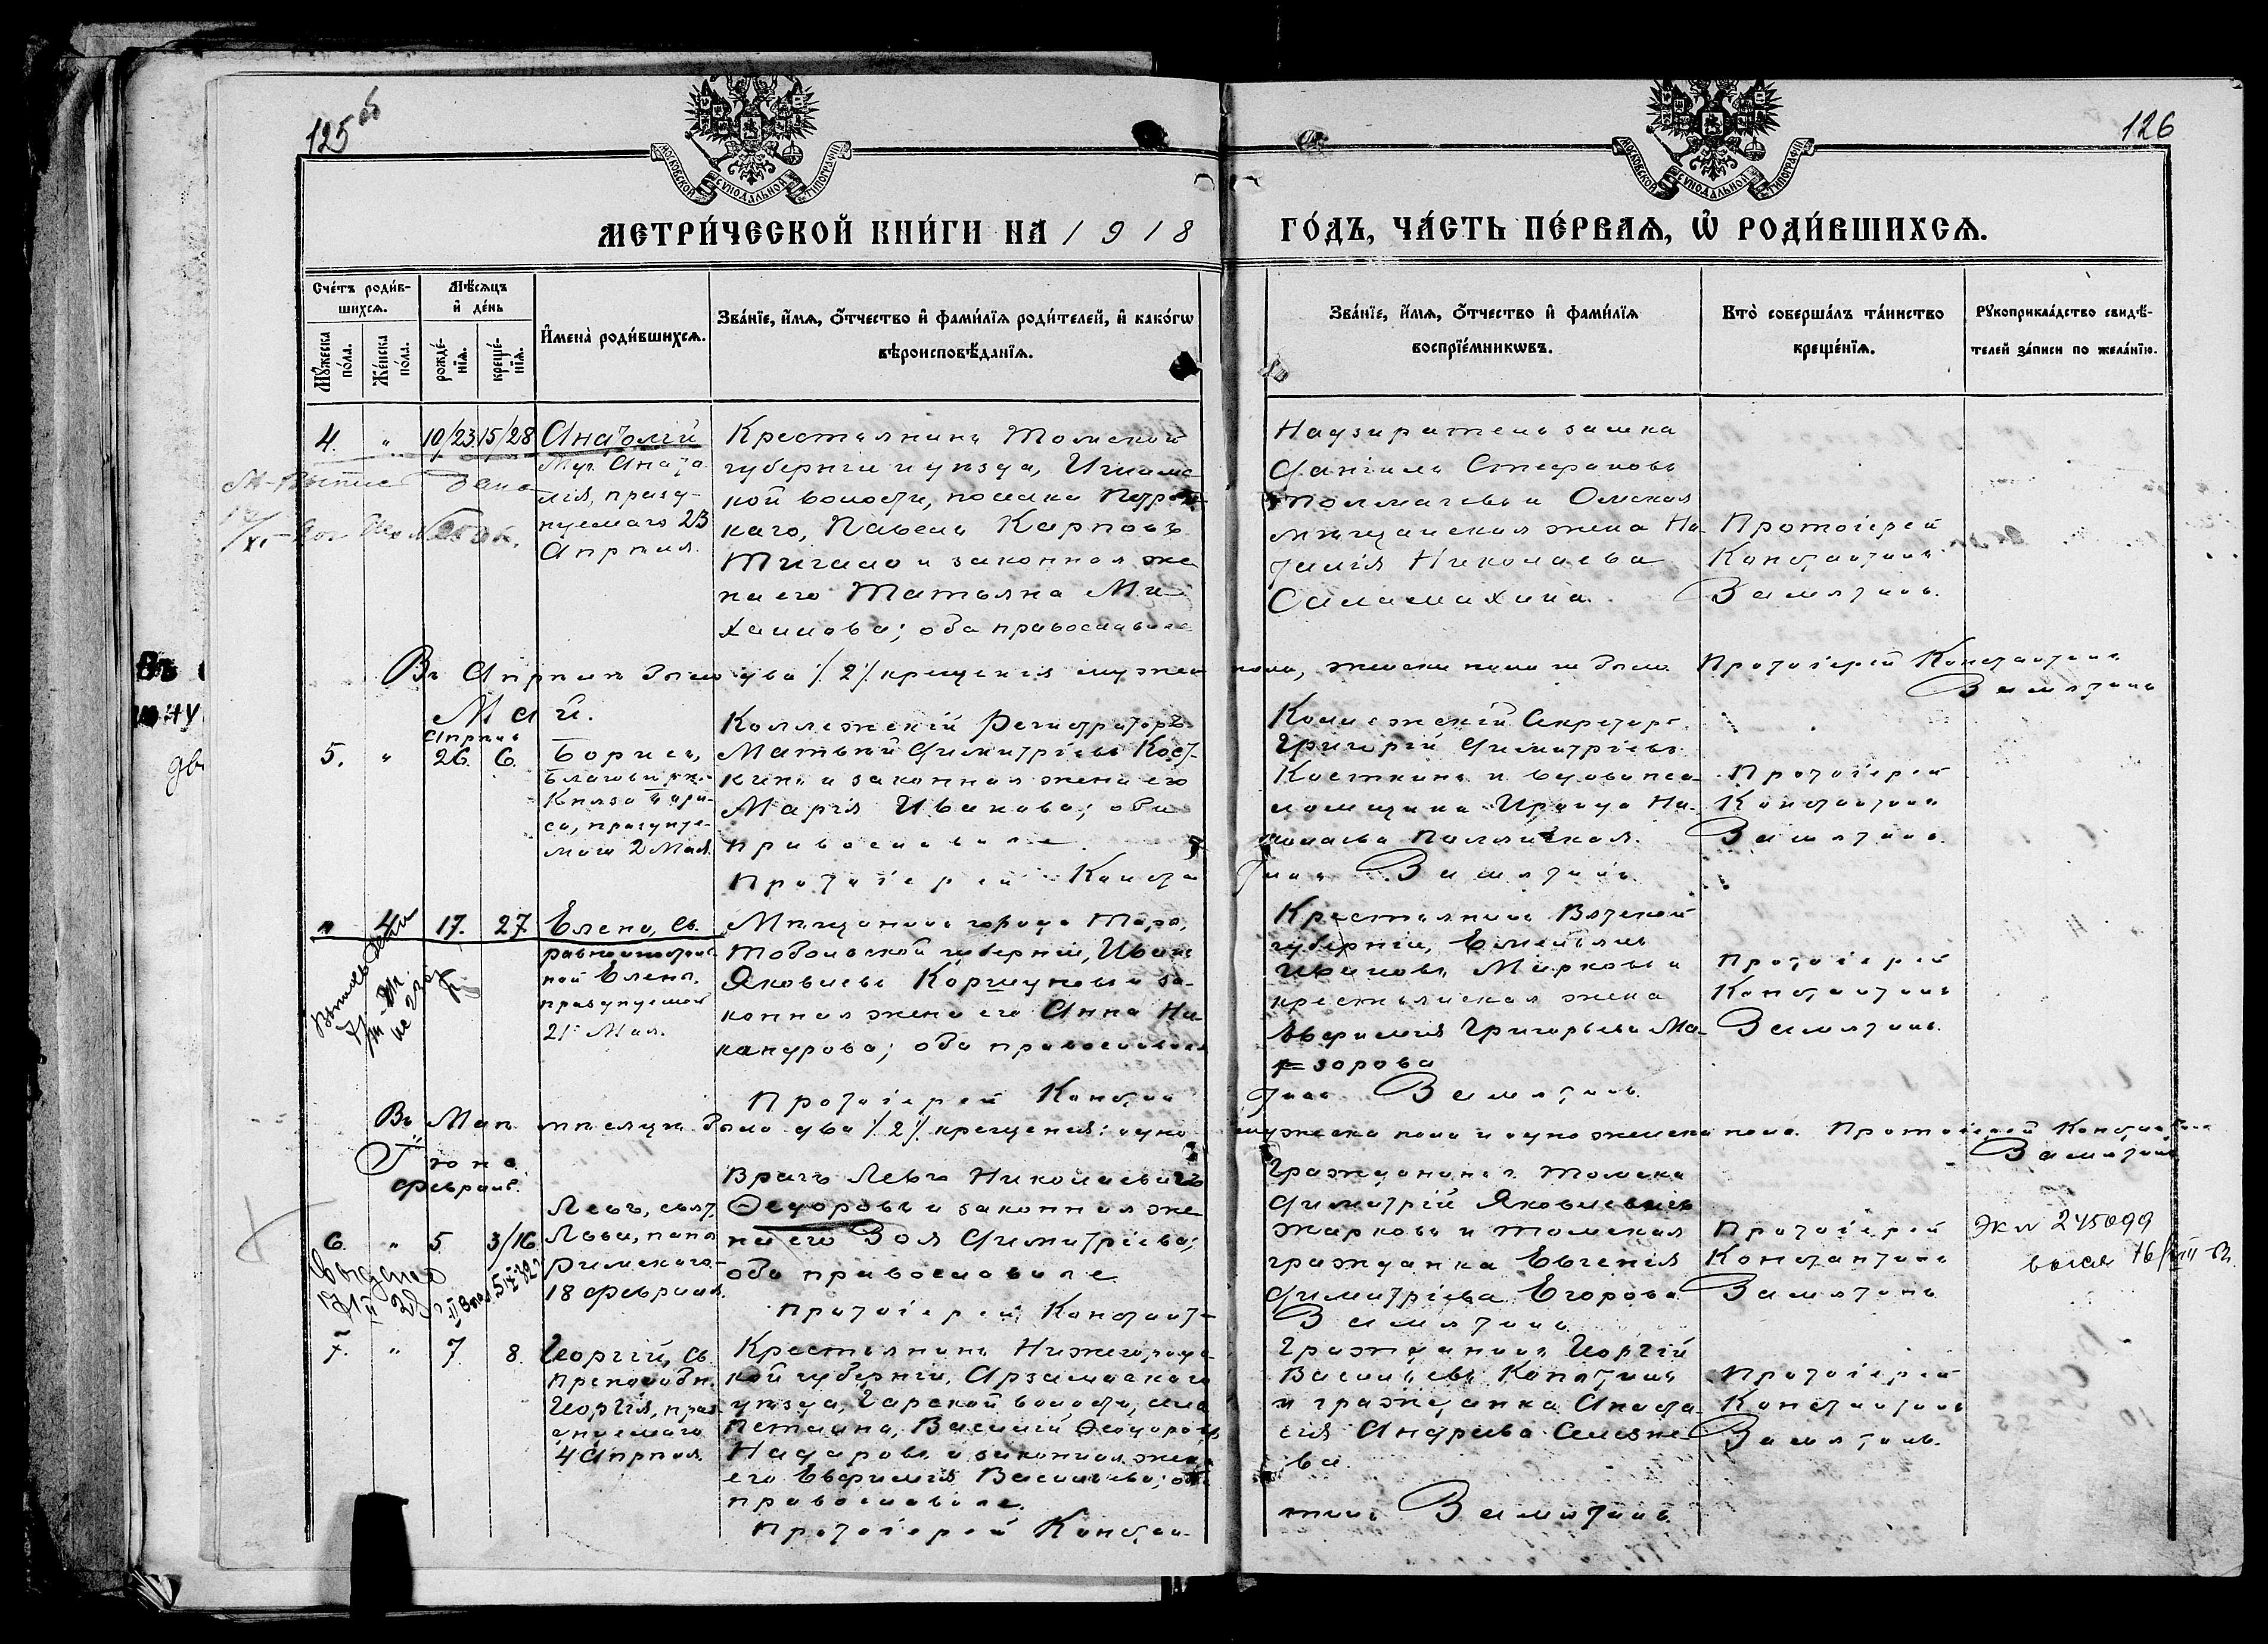 125 б
126
МОСКОВСКОЙ СѴНОДАЛЬНОЙ ТИПОГРАФІИ
МОСКОВСКОЙ СѴНОДАЛЬНОЙ ТИПОГРАФІИ
МЕТРИ́ЧЕСКОЙ КНИ́ГИ НА 1918
ГО́ДЪ, ЧА́СТЬ ПЕ́РВАЯ, Ѡ҆ РОДИ́ВШИХСЯ.
Сче́тъ роди́в-
шихся.
Мꙋ́жеска по́ла.
Же́нска по́ла.
Мѣ́сяцъ
и҆ де́нь
рожде́-
нїя.
креще́-
нїя.
И҆мена̀ роди́вшихся.
Зва́нїе, и҆́мя, ѻ҆́тчество и҆ фами́лїя роди́телей, и҆ како́гѡ
вѣроисповѣ́данїя.
Зва́нїе, и҆́мя, ѻ҆́тчество и҆ фами́лїя
воспрїе́мникѡвъ.
Кто̀ соверша́лъ та́инство
креще́нїя.
Рꙋкоприкла́дство свидѣ́-
телей за́писи по жела́нїю.
4. " 10/23 15/28 Анатолій
Муч. Анато-
лія, празд-
нуемаго 23
Апрѣля.
Крестьянинъ Томской
губерніи и уѣзда,
кой волости, поселка
каго, Павелъ Карповъ
Тигало и законная же
на его Татьяна Ми
хаилова; оба православные
Надзиратель замка
Даніилъ Стефановъ
Толмачевъ и Омская
мѣщанская жена На
талія Николаева
Саламахина.
Протоіерей
Константинъ
Замятинъ.
Въ Апрѣлѣ было два /2/ крещенія мужеска пола, женска пола не было. Протоіерей Константинъ
Замятинъ
Май.
Апрѣль
5. " 26. 6. Борисъ,
Благовѣрн.
Князя Бори-
са, праздну-
маго 2 Мая.
Коллежскій Регистраторъ
Матвѣй Димитріевъ Кост-
кинъ и законная жена его
Марія Иванова; оба
православные.
Протоіерей Конста
Коллежскій Секретарь
Григорій Димитріевъ
Косткинъ и вдова пса-
ломщика Ираида Ни-
колаева
Протоіерей
Константинъ
Замятинъ.
тинъ Замятинъ.
" 4 17. 27 Елена, св.
равноапостоль
ной Елены,
празднуемой
21 Мая.
Мѣщанинъ города Тара,
Тобольской губерніи, Иванъ
Яковлевъ Коршуновъ и за-
конная жена его Анна Ни
кандрова; оба православные
Протоіерей Констан
Крестьянинъ Вятской
губерніи, Емельянъ
Ивановъ Марковъ и
крестьянская жена
Евфимія Григорьева Ма-
зорова
тинъ Замятинъ.
Протоіерей
Константинъ
Замятинъ.
Въ Маѣ мѣсяцѣ было два /2/ крещенія: одно мужеска пола и одно женска пола. Протоіерей Константинъ
Замятинъ
Іюнь.
Февраль.
6. " 5. 3/16. Левъ, свят.
Льва, папы
Римскаго-
18 Февраля.
Врачъ Левъ Николаевичъ
Ѳедоровъ и законная же
на его Зоя Димитріева;
оба православные
Протоіерей Констант-
Гражданинъ г. Томска
Димитрій Яковлевичъ
Жарковъ и Томская
гражданка Евгенія
Димитріева Егорова
Замятинъ
Протоіерей
Константинъ
Замятинъ
245099
7. " 7. 8. Георгій, св.
преподобн.
Георгія, праз
днуемаго
4 Апрѣля.
Крестьянинъ Нижегородс
кой губерніи, Арзамаскаго
уѣзда, волости, села
Василій Ѳеодоровъ
и законная жена
его Евфимія Васильева; оба
православные.
Протоіерей Констан-
Гражданинъ Георгій
Васильевъ
и гражданка Анаста-
сія Андреева Селезне-
ва.
тинъ Замятинъ.
Протоіерей
Константинъ
Замятинъ.